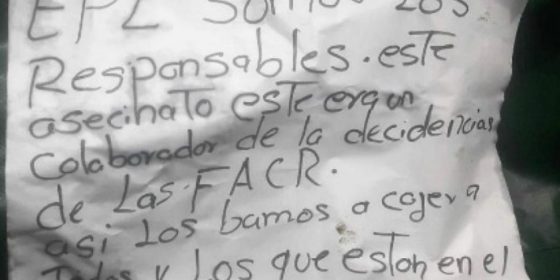 EPL Somos Los
Responsables. este
asecinato este era un
colaborador de la decidencias
de Las FACR.
así Los bamos a cojer a
Todos y Los que estan en el